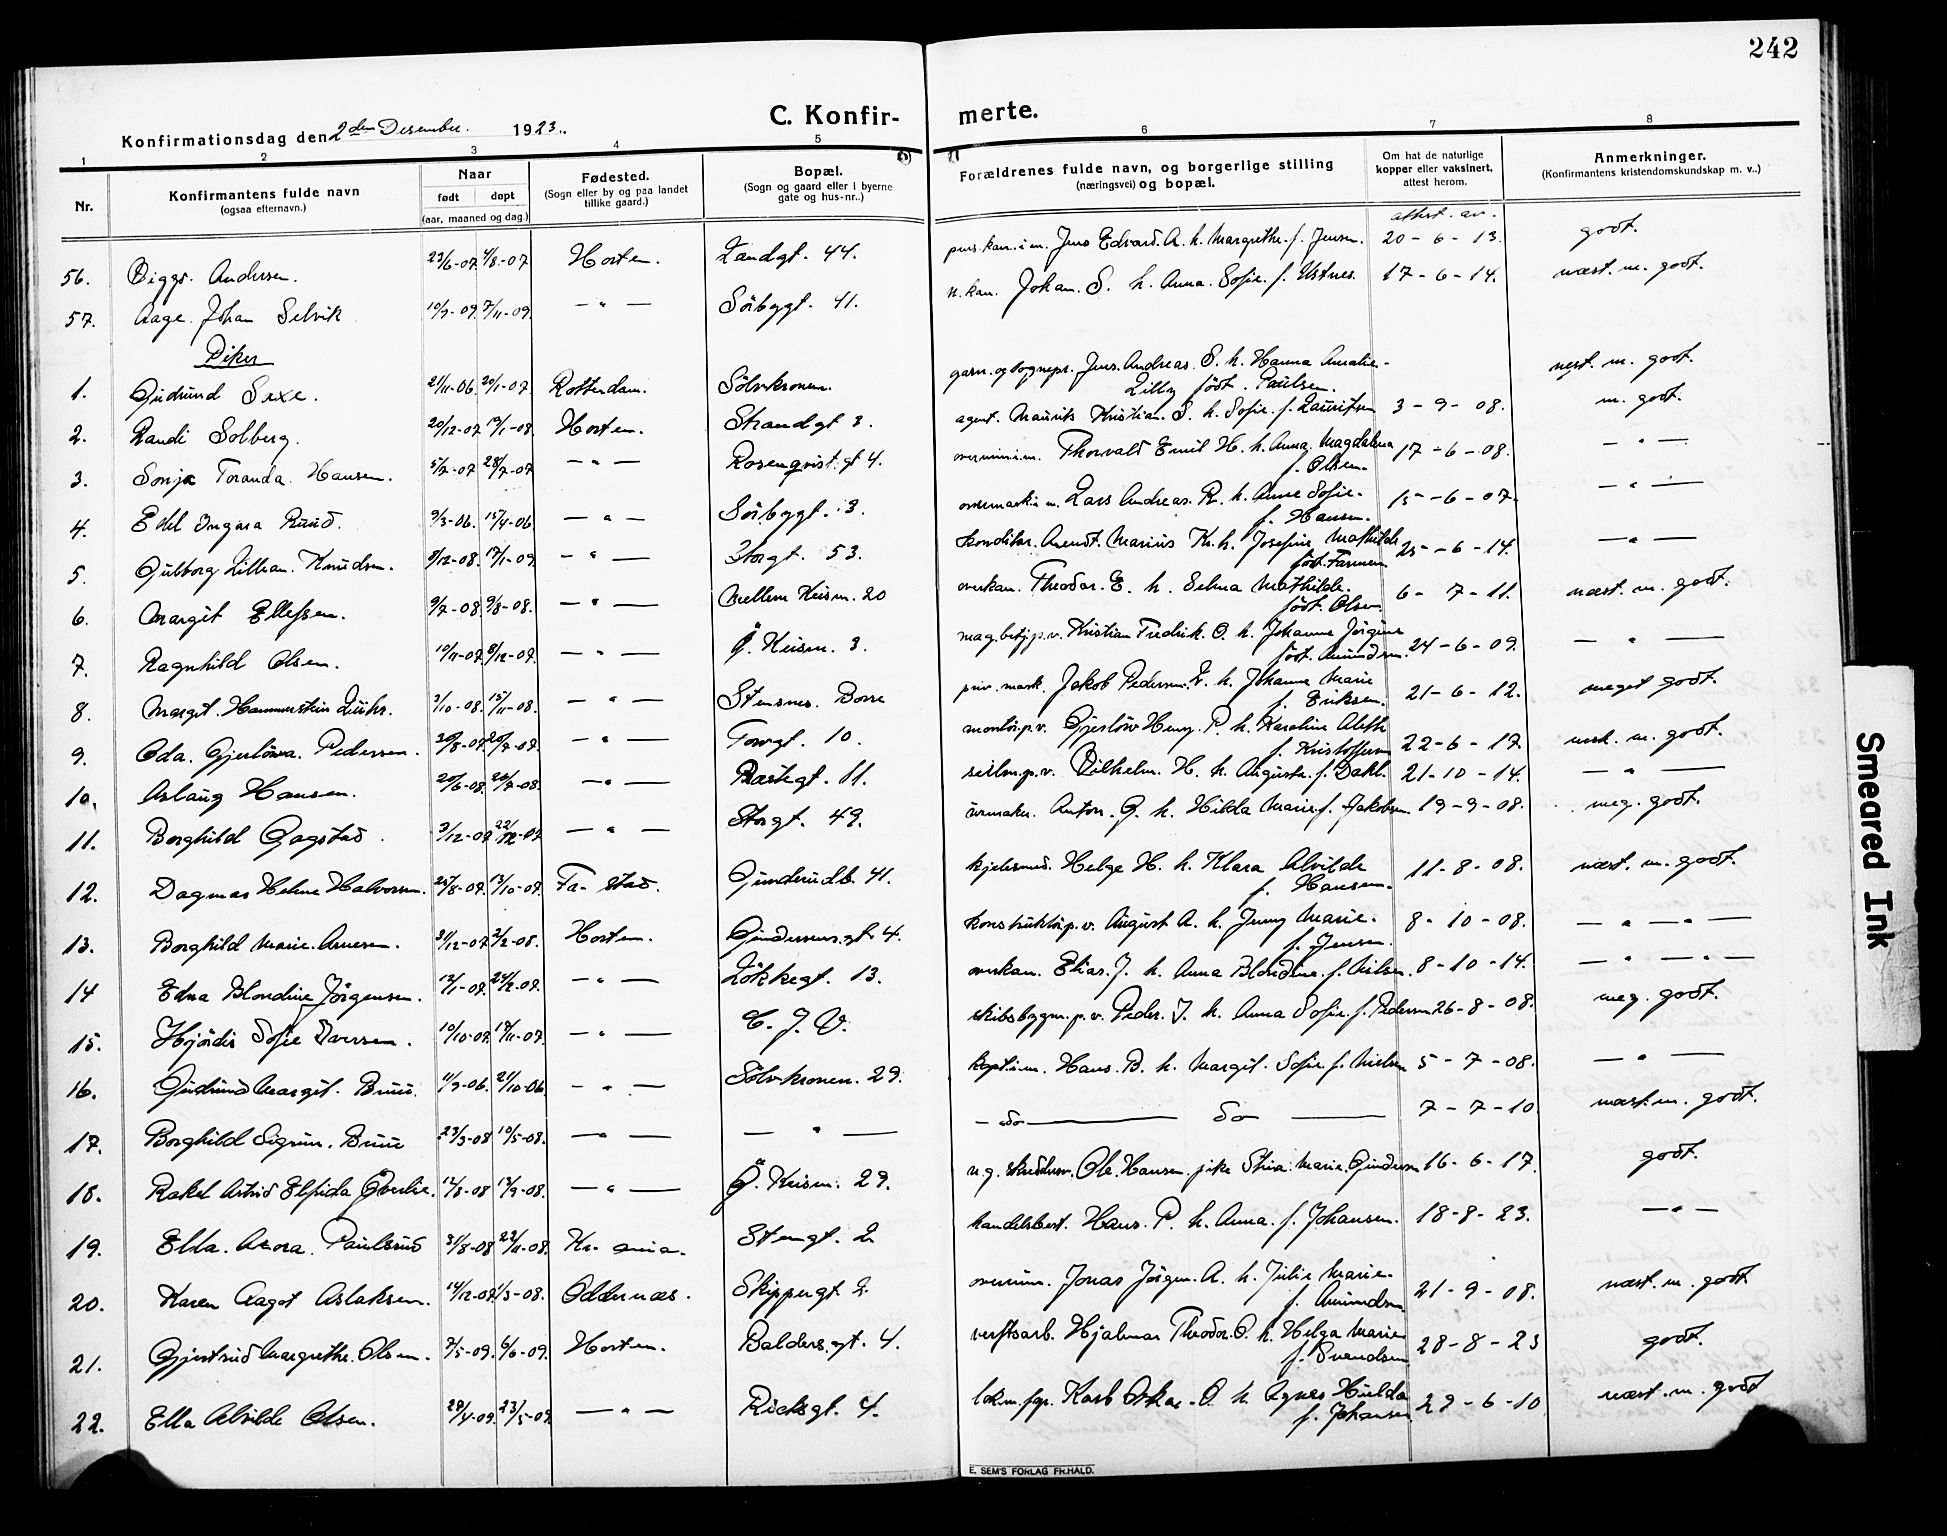 242
C. Konfir- merte.
Konfirmationsdag den 2den Desember. 1923.
1 2 3 4 5 6 7 8
Nr.
Konfirmantens fulde navn
(ogsaa efternavn.)
Naar
født døpt
(aar, maaned og dag.)
Fødested.
(Sogn eller by og paa landet
tillike gaard.)
Bopæl.
(Sogn og gaard eller i byerne
gate og hus-nr..)
Forældrenes fulde navn, og borgerlige stilling
(næringsvei) og bopæl.
Om hat de naturlige
kopper eller vaksinert,
attest herom.
Anmerkninger.
(Konfirmantens kristendomskundskap m. v..)
attest. av.
56. Andersen. 23/6-07 4/8-07 Horten. Landgt. 44. Jens Edvard. A. h. Margrethe. f. Jensen. 20-6-13. godt.
57. Aage. Johan Selvik 10/9-09 7/11-09. — " — Sörbygt. 41. n. kan. Johan. S. h. Anna. Sofie. f. 17-6-14. næst. m. godt.
Piker
1. Gudrund Sexe. 21/11-06 20/1-07 Rotterdam. Sölvkronen. Jens. Andreas. S. h. Hanna Amalie- nest. m. godt.
Lilly födt. Paulsen.
2. Randi Solberg. 20/12-07 19/1-08 Horten. Strandgt 3. agent. Maurits Kristian. S. h. Sofie. f. Lauritsen 3-9-08. m. godt.
3. Sonja Toranda. Hansen. 5/2-07 28/7-07 — " — Rosenqvist. gt 4. Thorvald Emil H. h. Anna. Magdalena 17-6-08. — " —
f. Olsen.
4. Edel Ingara Ruud. 9/3-06. 15/4-06 — " — Sörbygt. 3. Lars Andreas. R. h. Anne Sofie. 15-6-07. — " —
f. Hansen.
5. Gulborg Lillian. Knudsen. 9/12-08. 17/1-09 — " — Storgt. 53. konditor. Arendt. Marius K. h. Josefine Mathilde 25-6-14. — " —
födt.
6. Margit Ellefsen. 9/7-08 9/8-08. — " — Mellem Keism. 20 overkan. Theodor. E. h. Selma Mathilde. 6-7-11. næst. m. godt.
födt. Olsen
7. Ragnhild Olsen. 10/11-07 8/12-07. — " — Ö. Keism. 3. Kristian Fredrik. O. h. Johanne Jörgine 24-6-09. — " —
födt. Amundsen.
8. Margit. Hammerstein Lühr. 3/10-08. 15/11-08. — " — Stensnes. Borre priv. mask. Jakob Pedersen. L. h. Johanne Marie 21-6-12. meget godt.
f. Eriksen.
9. Oda. Gjerlöwa. Pedersen. — " — Torvgt. 10. montörp. v. Gjerlöw Henry. P. h. Karoline Aleth 22-6-17. nest. m. godt.
f. Kristoffersen
10. Aslaug Hansen. 20/6-08. 26/7-08. — " — Rastegt. 11. Vilhelm. H. h. Augusta. f. Dahl. 21-10-14. — " —
11. Borghild Gogstad. 3/12-07 — " — Storgt. 49. urmaker. Anton. G. h. Hilda Marie. f. Jakobsen. 19-9-08. meg. godt.
12. Dagmar Helene Halvorsen. 25/8-07. 13/10-07. Fa-stad. Gunderudb. 41. kjelsmed. Helge H. h. Klara Alvilde 11-8-08. næst. m. godt.
f. Hansen.
13. Borghild Marie. Arnesen. 31/12-07 2/2-08. Horten. Gundersens. gt. 4. konstruktörp. v. August A. h. Jenny Marie. 8-10-08. — " — " —
f. Jensen.
14 Edna Blondine Jörgensen. 12/1-09. 24/2-09. — " — Lökkegt. 13. overkan. Elias. J. h. Anna Blondine. f. Nilsen. 8-10-14. — " — " —
15. Hjördis Sofie Iversen. 10/10-07. 17/11-07. — " — C. J. V. skibsbygm. p. v. Peder. I. h. Anna Sofie. f. Pedersen 26-8-08. meg. godt.
16. Gudrund Margit. Buue. 11/9-06. 21/10-06 — " — Sölvkronen. 29. kapt. i m. Hans. B. h. Margit. Sofie. f. Nielsen 5-7-08. — " —
17. Borghild Sigrun. Buue 23/3-08 10/5-08. — " — — " — — do — do — 7-7-10. næst. m. godt.
18. Rakel Astrid Elfrida Överlie. 12/8-08 13/9-08. — " — Ö. Keism. 29. Ole. Hansen. pike Stina. Marie. Gundersen 16-6-17. godt.
19. Ella. Asora. Paulsrud 31/8-08 22/11-08. Kr. ania. Stengt. 2 handelsbest. Hans. P. h. Anna. f. Johansen. 18-8-23. — " —
20. Karen Aagot Aslaksen. 14/12-07. 1/3-08. Oddernæs. Skippergt 2. Jonas Jörgen. A. h. Julie Marie. 21-9-08. næst. m. godt
f. Amundsen
21. Gjertrud Margrethe. Olsen. 7/5-09. 6/6-09. Horten. Balders. gt. 4. verftsarb. Hjalmar Theodor. O. h. Helga Marie 28-8-23 godt.
f. Svendsen
22. Ella Alvilde Olsen. 28/4-09. 23/5-09 — " — Ricksgt. 4. Karl Oskar. O. h. Agnes Hulda 29-6-10 næst. m. godt
f. Johansen
E. SEM'S FORLAG FR.HALD.
Smeared Ink